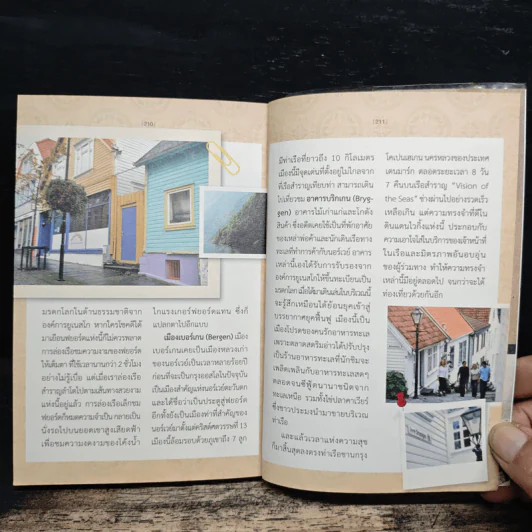 210
มรดกโลกในด้านธรรมชาติจาก
องค์การยูเนสโก หากใครโชคดีได้
มาเยือนฟยอร์ดแห่งนี้ก็ไม่ควรพลาด
การล่องเรือชมความงามของฟยอร์ด
ให้เต็มตา ที่ใช้เวลานานกว่า 2 ชั่วโมง
อย่างไม่รู้เบื่อ แต่เมื่อเราล่องเรือ
สำราญลำโตไปตามเส้นทางสวยงาม
แห่งนี้อยู่แล้ว การล่องเรือเล็กชม
ฟยอร์ดก็หมดความจำเป็น กลายเป็น
นั่งรถไปบนยอดเขาสูงเสียดฟ้า
เพื่อชมความงดงามของโค้งน้ำ
ไกแรงเกอร์ฟยอร์ดแทน ซึ่งก็
แปลกตาไปอีกแบบ
เมืองเบอร์เกน (Bergen) เมือง
เบอร์เกนเคยเป็นเมืองหลวงเก่า
ของนอร์เวย์เป็นเวลาหลายร้อยปี
ก่อนที่จะเป็นกรุงออสโลในปัจจุบัน
เป็นเมืองสำคัญแห่งนอร์เวย์ตะวันตก
และได้ชื่อว่าเป็นประตูสู่ฟยอร์ด
อีกทั้งยังเป็นเมืองท่าที่สำคัญของ
นอร์เวย์มาตั้งแต่คริสต์ศตวรรษที่ 13
เมืองนี้ล้อมรอบด้วยภูเขาถึง 7 ลูก
211
มีท่าเรือที่ยาวถึง 10 กิโลเมตร
เมืองนี้มีจุดเด่นที่ตั้งอยู่ไม่ไกลจาก
ที่เรือสำราญเทียบท่า สามารถเดิน
ไปเที่ยวชม อาคารบริกเกน (Bryg-
gen) อาคารไม้เก่าแก่และโกดัง
สินค้า ซึ่งอดีตเคยใช้เป็นที่พักอาศัย
ของเหล่าพ่อค้าและนักเดินเรือทาง
ทะเลที่ทำการค้ากับนอร์เวย์ อาคาร
เหล่านี้เองได้รับการรับรองจาก
องค์การยูเนสโกให้ขึ้นทะเบียนเป็น
มรดกโลก เมื่อได้มาเดินเล่นในบริเวณนี้
จะรู้สึกเหมือนได้ย้อนยุคเข้าสู่
บรรยากาศยุคฟื้นฟู เมืองนี้เป็น
เมืองโปรดของคนรักอาหารทะเล
เพราะตลาดสดริมอ่าวได้ปรับปรุง
เป็นร้านอาหารทะเลที่นักชิมจะ
เพลิดเพลินกับอาหารทะเลสดๆ
ตลอดจนซีฟู้ดนานาชนิดจาก
ทะเลเหนือ รวมทั้งไข่ปลาคาเวียร์
ซึ่งชาวประมงนำมาขายบริเวณ
ท่าเรือ
และแล้วเวลาแห่งความสุข
ก็มาสิ้นสุดลงตรงท่าเรือชานกรุง
โคเปนเฮเกน นครหลวงของประเทศ
เดนมาร์ก ตลอดระยะเวลา 8 วัน
7 คืนบนเรือสำราญ "Vision of
the Seas" ช่างผ่านไปอย่างรวดเร็ว
เหลือเกิน แต่ความทรงจำที่ดีใน
ดินแดนไวกิ้งแห่งนี้ ประกอบกับ
ความเอาใจใส่ในบริการของเจ้าหน้าที่
ในเรือและมิตรภาพอันอบอุ่น
ของผู้ร่วมทาง ทำให้ความทรงจำ
เหล่านี้มีอยู่ตลอดไป จนกว่าจะได้
ท่องเที่ยวด้วยกันอีก